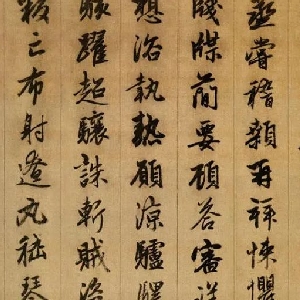 烝嘗稽顙再拜悚懼
牋牒簡要顧答審詳
想浴執熱願涼驢騾
駭躍超驤誅斬賊盜
叛亡布射遼丸嵇琴